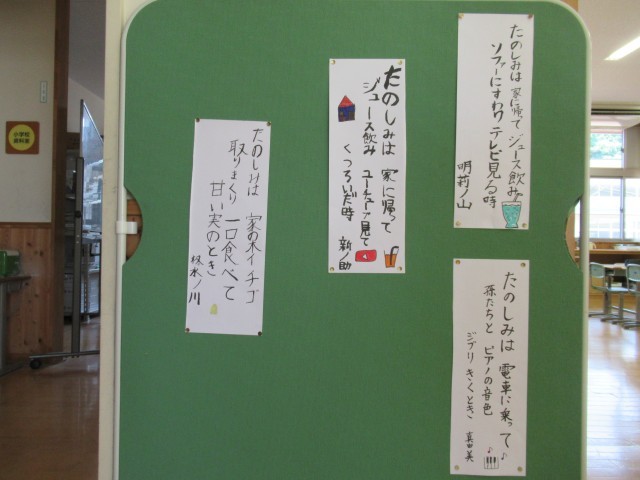 たのしみは 家に帰って ジュース飲み
ソファーにすわり テレビ見る時
明莉ノ山
たのしみは 電車に乗って
孫たちと ピアノの音色
ジブリきくとき
たのしみは 家に帰って
ジュース飲み ユーチューブ見て
くつろいだ時 新ノ助
たのしみは 家の木イチゴ
取りまくり 一口食べて
甘い実のとき
小学校
資料室